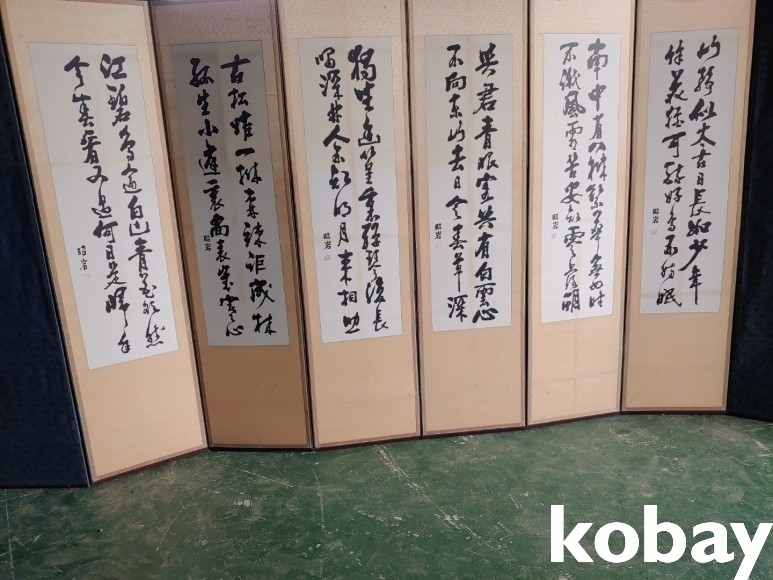 山靜似太古日長如少年
餘花猶可醉好鳥不妨眠
昭岩
南中有八樹繁華無四時
不識風霜苦安知零落期
昭岩
與君青眼客共有白雲心
不向東山去日令春草深
昭岩
獨坐幽篁裏彈琴復長
嘯深林人不知明月來相照
昭岩
古松唯一樹森竦詎成林
孤生小庭裏尚表歲寒心
昭岩
江碧鳥逾白山青花欲然
今春看又過何日是歸年
昭岩
kobay